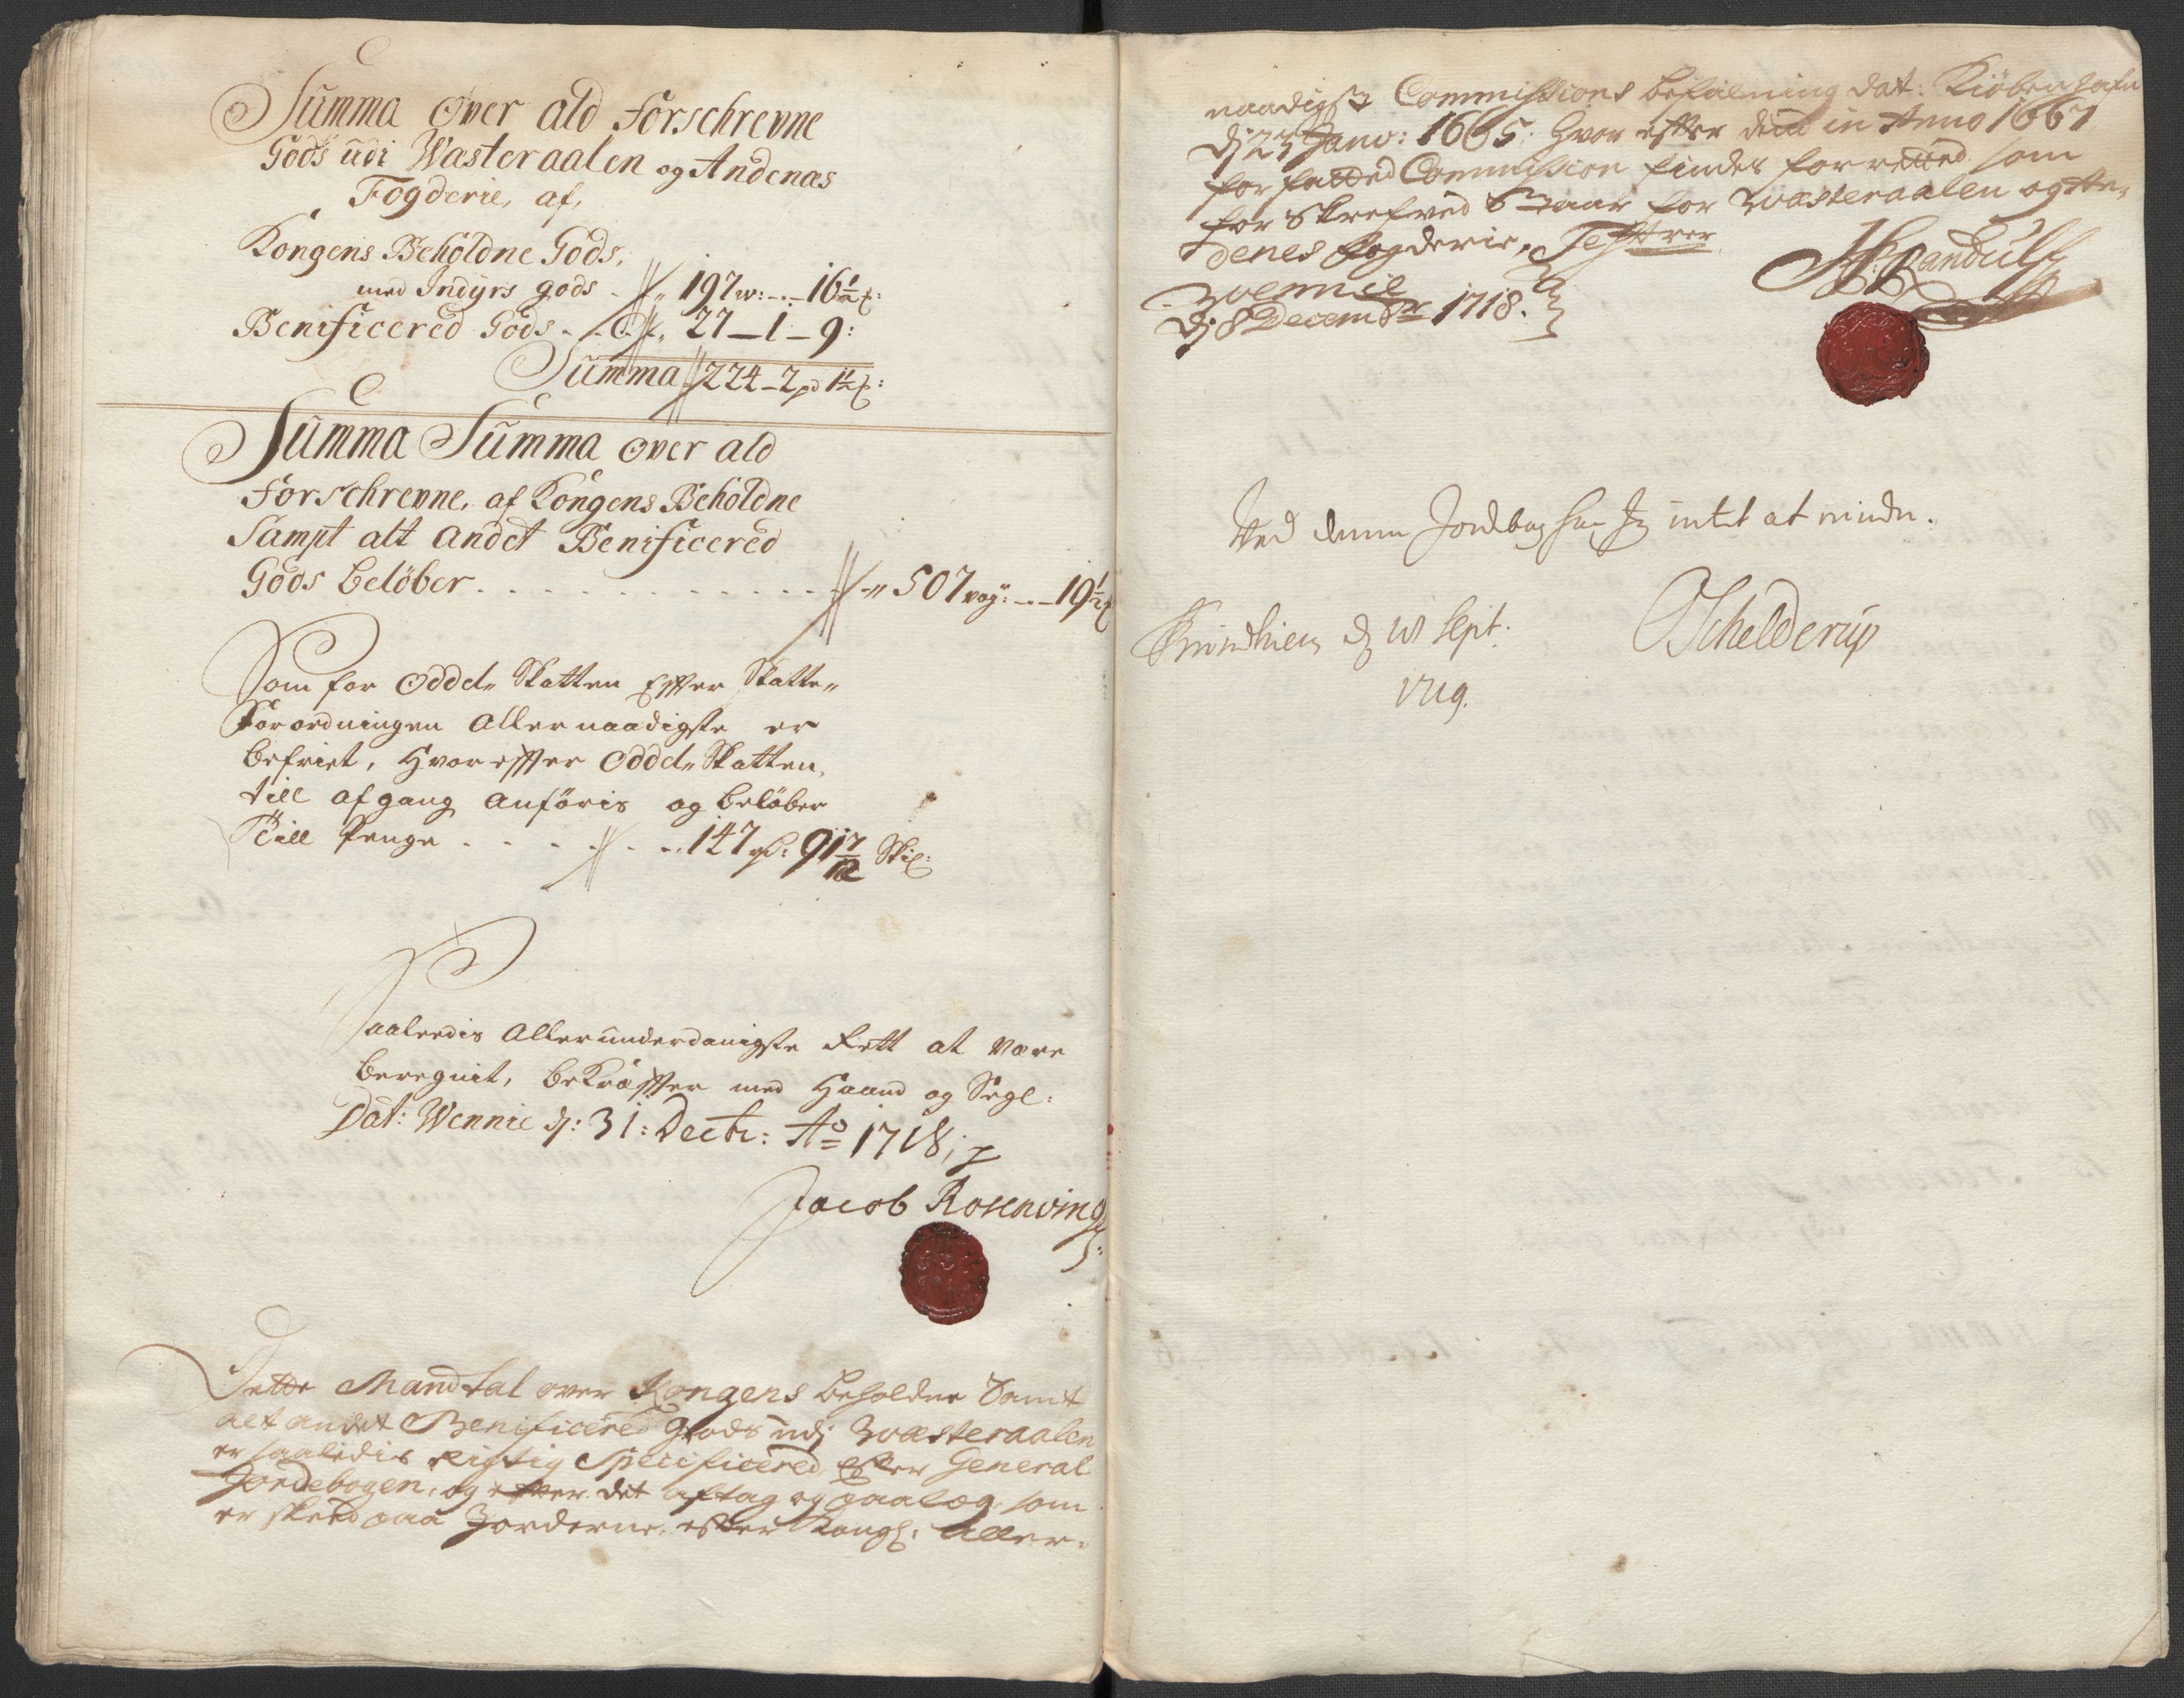 Summa over ald forschrevne
Gods udi Wasteraalen og Andenæs
Fogderie, af,
Kongens Beholdne Gods,
med Indyrs gods - 197 w: -.- 16½ :
Benificered Gods - - 27 – 1 – 9:
Summa 224 – 2 pd 1½ :
Summa Summa over ald
forschrevne, af Kongens Beholdne
Sampt alt andet Benificered
Gods beløber . . . . . . . . . . . . 507 vog: -.- 19½
Som for Oddel Skatten Effter Skatte-
Forordningen Allernaadigste er
befriet, Hvoreffter Oddel Skatten,
till afgang anføris og beløber
Till Penge . . . . . . 147 rd: 91 7/12 Skil:
Saaledis Allerunderdanigste Rett at være
beregnit, bekræffter med Haand og Segl:
Dat: Wennie d: 31: Decbr: Ao 1718;
Jacob Rosenving
Dette Mandtal over Kongens beholdne Samt
alt andet Benificered Gods udj Wæsteraalen
er saaledis rigtig Specificered, effter General
Jordebogen, og effter det aftag og paalæg, som
er skeed paa Jorderne, effter Kongl: Aller-
naadigste Commissions befalning dat: Kiøbenhafn
dj 23 Janv: 1665. Hvor effter den in Anno 1667
forfatted Commission findes forretted som
for Skrefved staar for Wæsteraalen og An-
denes fogderie, Testerer
Wennie
dj 8 Decembr 1718.
Ved denne Jordbog har Jeg intet at minde.
Trundhiem d 18 Sept:
1719.
OSchelderup